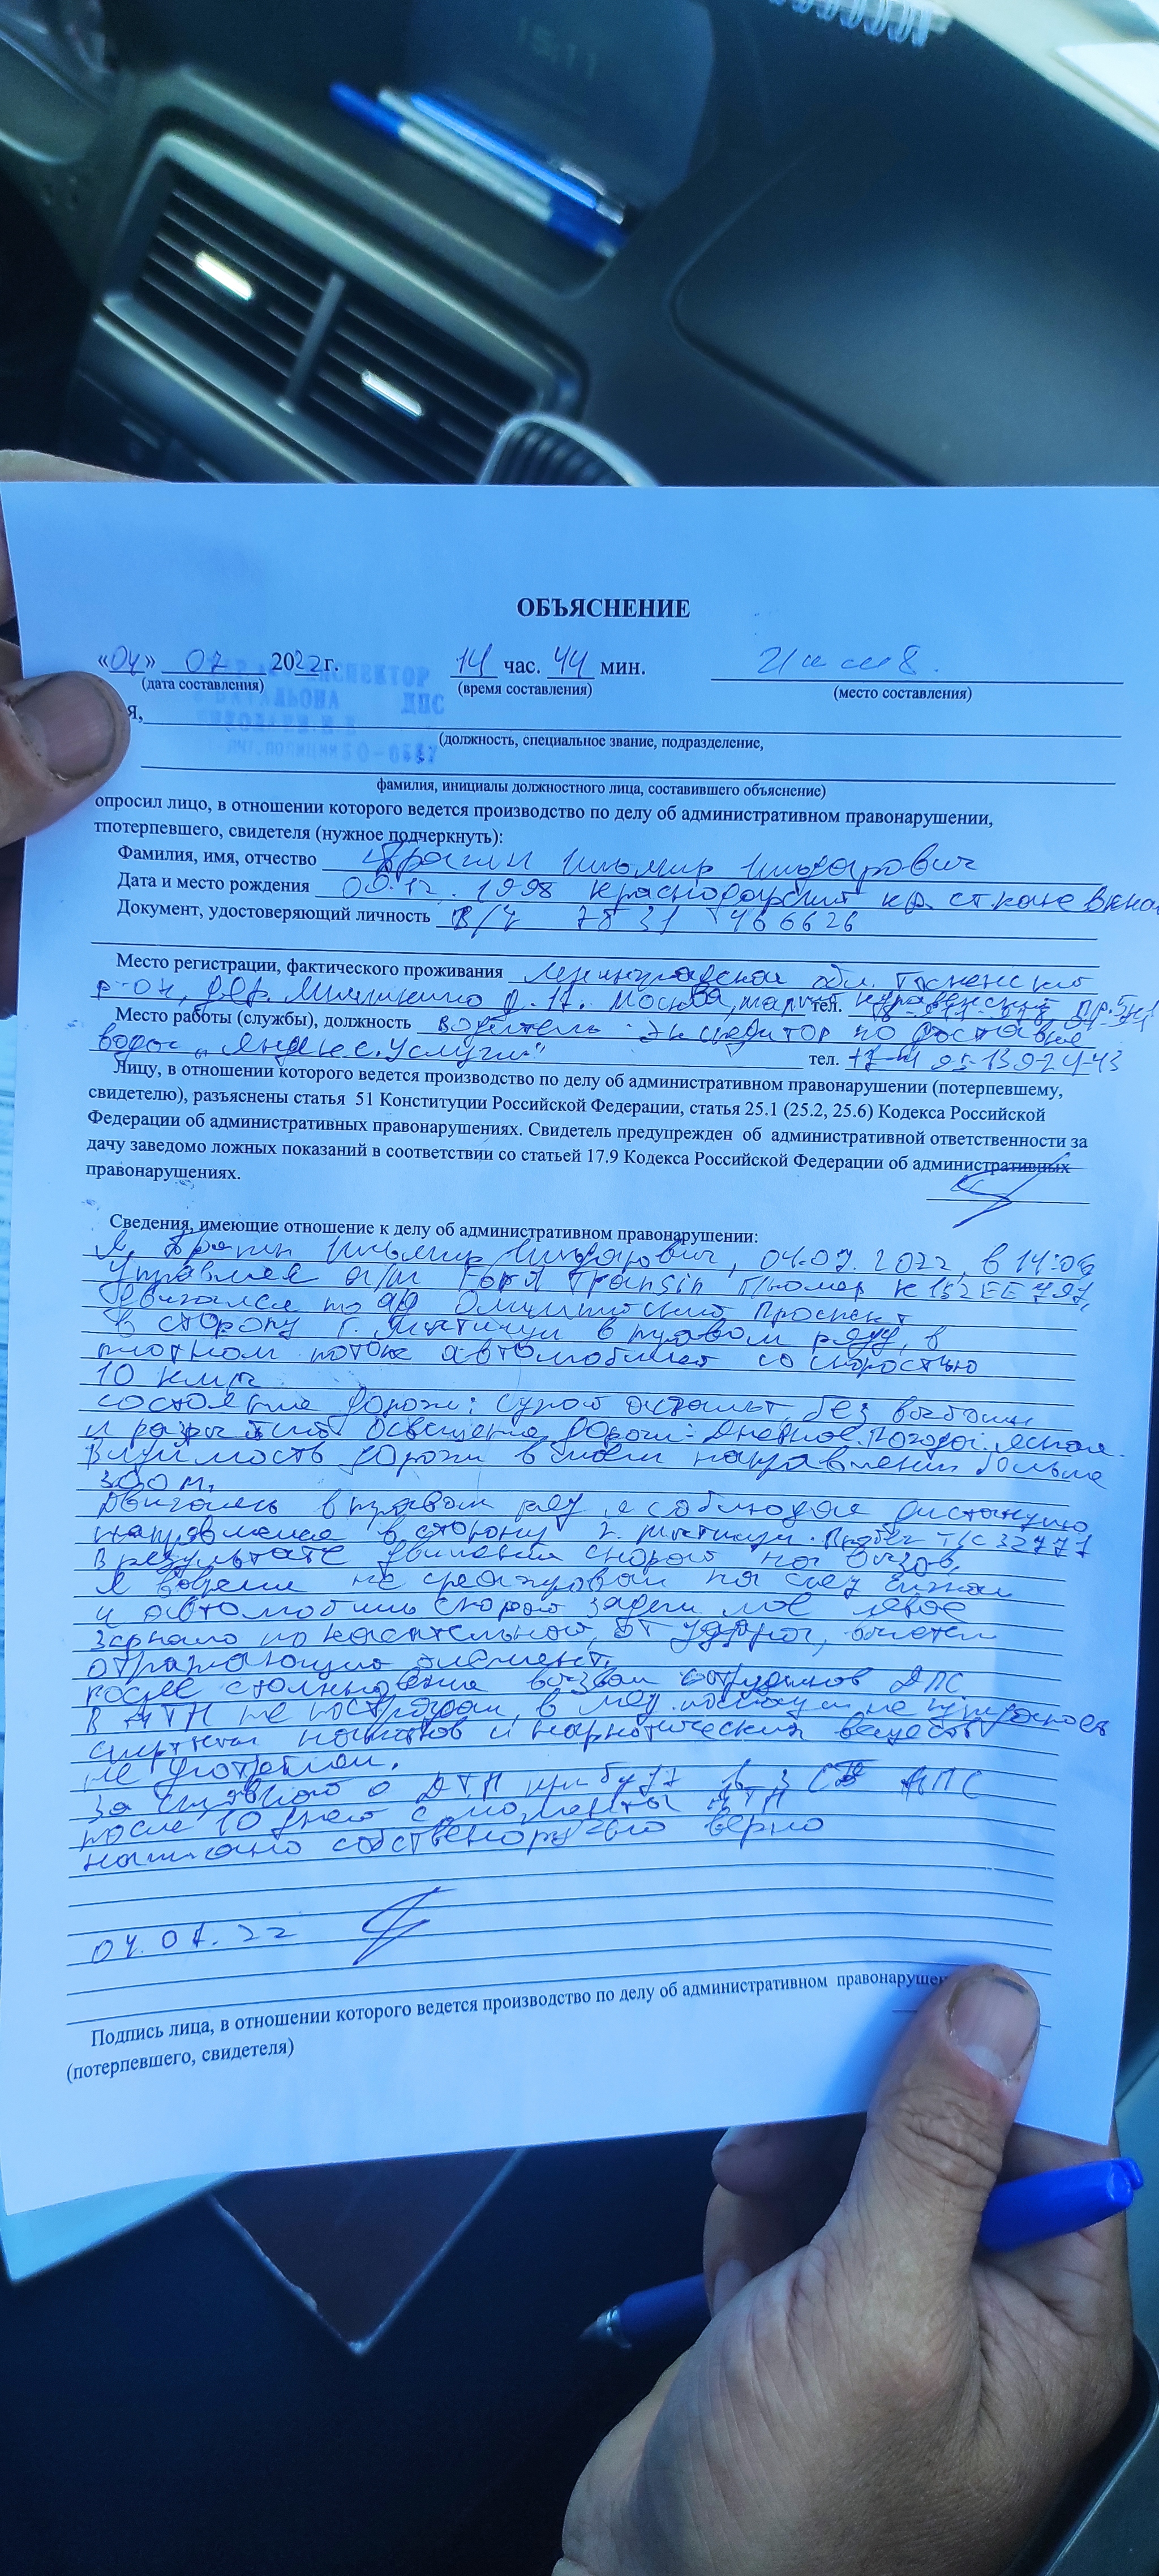 ОБЪЯСНЕНИЕ
«04» 07 2022г. 14 час. 44 мин.
(дата составления) (время составления) (место составления)
ИНСПЕКТОР
БАТАЛЬОНА ДПС
Я,
(должность, специальное звание, подразделение,
фамилия, инициалы должностного лица, составившего объяснение)
опросил лицо, в отношении которого ведется производство по делу об административном правонарушении,
тпотерпевшего, свидетеля (нужное подчеркнуть):
Фамилия, имя, отчество Ильдарович
Дата и место рождения 09.12.1998 Краснодарский кр. ст
Документ, удостоверяющий личность В/У 7831 466626
Место регистрации, фактического проживания Ленинградская обл. Тосненский
р-он, дер. д. 17. Москва, тел.
Место работы (службы), должность водитель-экспедитор по доставке
воды „Яндекс.Услуги" тел.
Лицу, в отношении которого ведется производство по делу об административном правонарушении (потерпевшему,
свидетелю), разъяснены статья 51 Конституции Российской Федерации, статья 25.1 (25.2, 25.6) Кодекса Российской
Федерации об административных правонарушениях. Свидетель предупрежден об административной ответственности за
дачу заведомо ложных показаний в соответствии со статьей 17.9 Кодекса Российской Федерации об административных
правонарушениях.
Сведения, имеющие отношение к делу об административном правонарушении:
Я, Ильдарович, 04.07.2022, в 14:06
Управляя а/м Ford Transin г/номер К 152 ЕЕ 797,
Двигался по Олимпийский проспект
в сторону г. Мытищи в правом ряду, в
плотном потоке автомобилей со скоростью
10 км/ч
состояние дороги: сухой асфальт без выбоин
и разрытий освещение дороги: дневное. Погода: ясная.
Видимость дороги в моём направлении больше
300 м.
Двигаясь в правом ряду я соблюдая дистанцию
направлялся в сторону г. Мытищи. Пробег Т/С 32777
В результате движения скорой на вызов,
Я вовремя не среагировал на
и автомобиль скорой задел моё левое
зеркало по касательной, от удара, отлетел
отражающий элемент.
После столкновения вызвал сотрудников ДПС
В ДТП не пострадал, в мед. помощи не нуждаюсь
спиртных напитков и наркотических веществ
не употреблял.
За справкой о ДТП прибуду в 3 СБ ДПС
после 10 дней с момента ДТП
написано собственноручно верно
04.07.22
Подпись лица, в отношении которого ведется производство по делу об административном правонарушен
(потерпевшего, свидетеля)